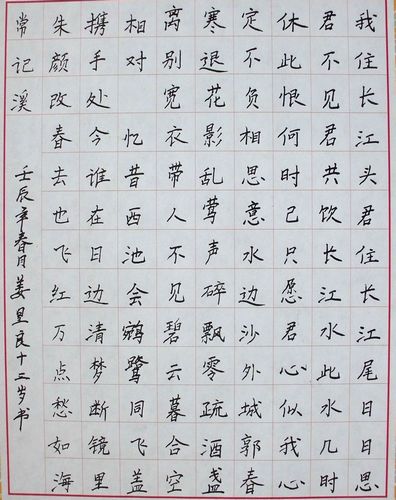 我住长江头君住长江尾日日思
君不见君共饮长江水此水几时
休此恨何时已只愿君心似我心
定不负相思意水边沙外城郭春
寒退花影乱莺声碎飘零疏酒盏
离别宽衣带人不见碧云暮合空
相对 忆昔西池会鹓鹭同飞盖
携手处今谁在日边清梦断镜里
朱颜改春去也飞红万点愁如海
常记溪
壬辰年春月姜良十三岁书